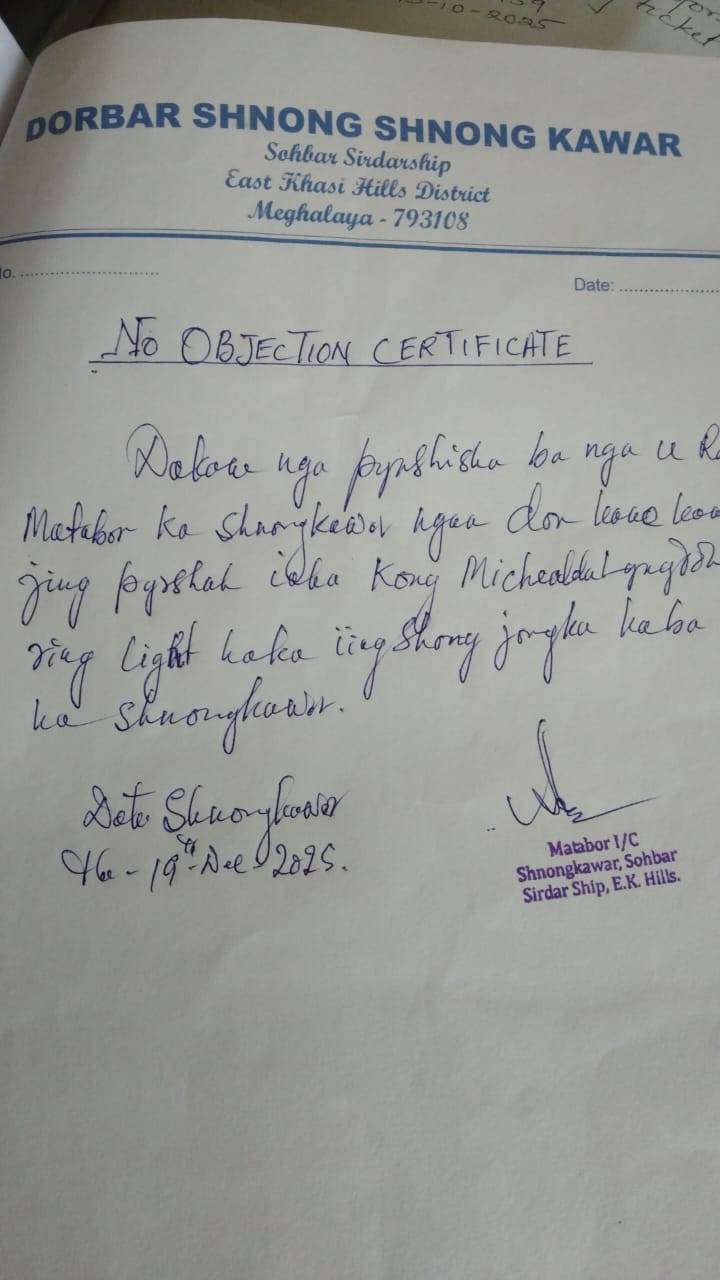 -10-2025
ticket
DORBAR SHNONG SHNONG KAWAR
Sohbar Sirdarship
East Khasi Hills District
Meghalaya - 793108
No. ............................
Date: ....................
NO OBJECTION CERTIFICATE
nga pynshisha ba nga u
Matabor ka Shnongkawar ngaa don kano
jing pyrshah iaka Kong
ring light haka iing Shong jongka kaba
ha Shnongkawar.
Date Shnongkawar
the - 19th Dec 2025.
Matabor I/C
Shnongkawar, Sohbar
Sirdar Ship, E.K. Hills.